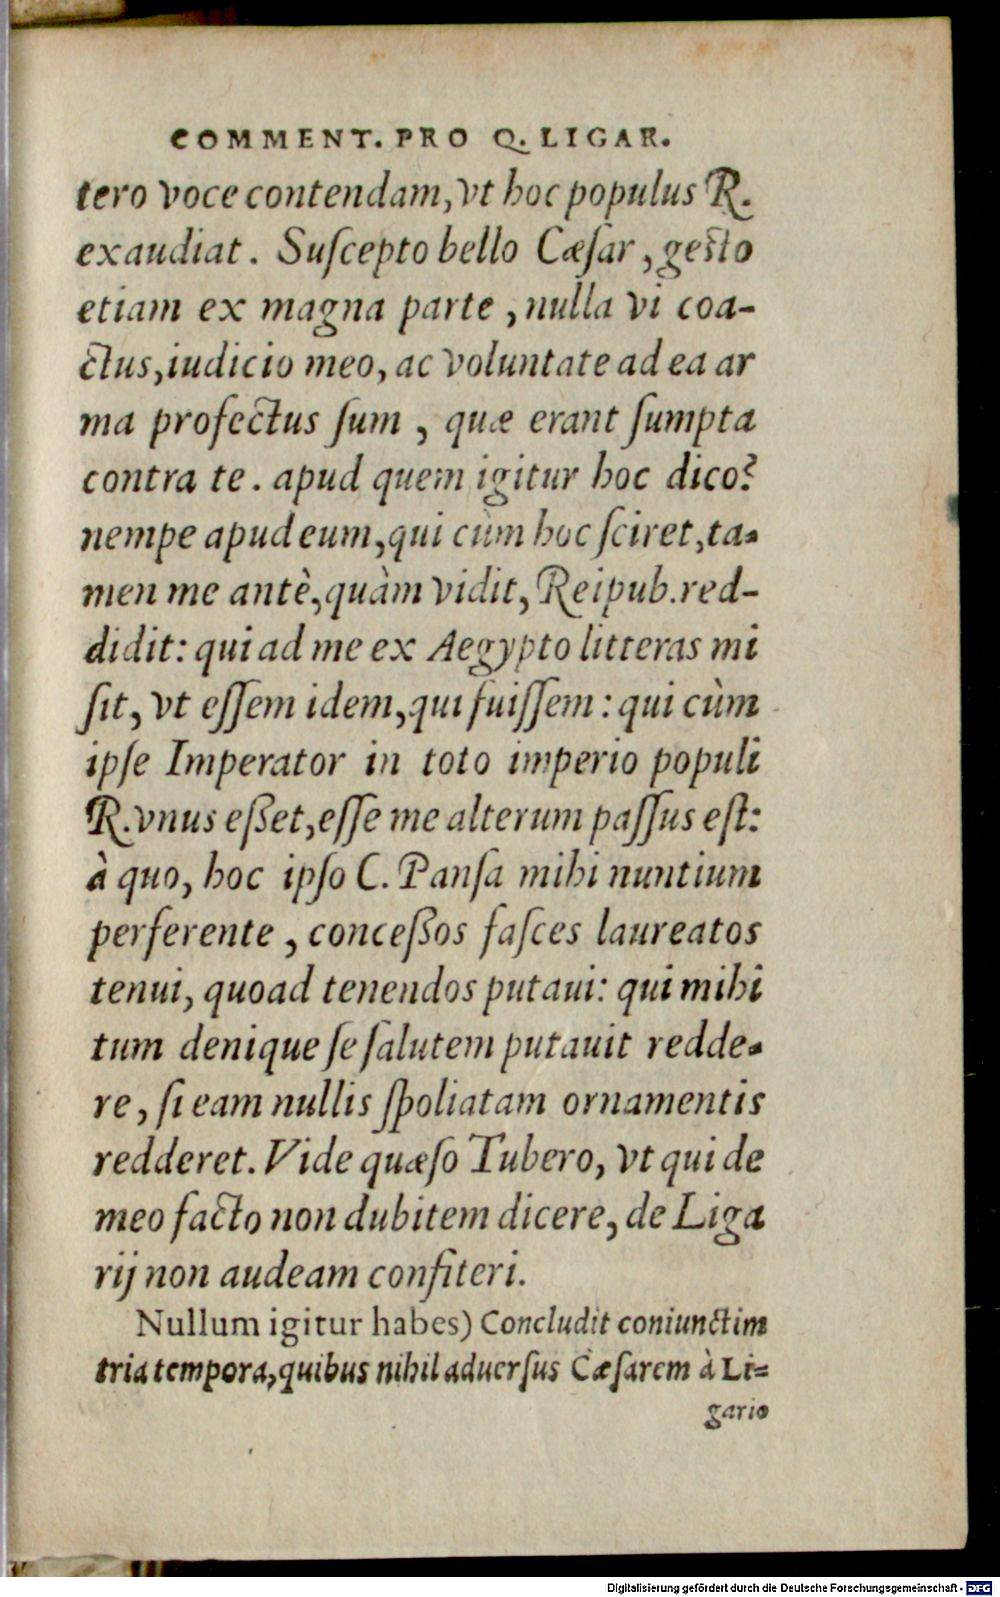 COMMENT. PRO Q. LIGAR.
tero voce contendam, vt hoc populus R.
exaudiat. Suſcepto bello Cæſar, geſto
etiam ex magna parte, nulla vi coa-
ctus, iudicio meo, ac voluntate ad ea ar
ma profectus ſum, quæ erant ſumpta
contra te. apud quem igitur hoc dico?
nempe apud eum, qui cùm hoc ſciret, ta-
men me antè, quàm vidit, Reipub. red-
didit: qui ad me ex Aegypto litteras mi
ſit, vt eſſem idem, qui fuiſſem: qui cùm
ipſe Imperator in toto imperio populi
R. vnus eßet, eſſe me alterum paſſus eſt:
à quo, hoc ipſo C. Panſa mihi nuntium
perferente, conceßos faſces laureatos
tenui, quoad tenendos putaui: qui mihi
tum denique ſe ſalutem putauit redde-
re, ſi eam nullis ſpoliatam ornamentis
redderet. Vide quæſo Tubero, vt qui de
meo facto non dubitem dicere, de Liga
rij non audeam confiteri.
Nullum igitur habes) Concludit coniunctim
tria tempora, quibus nihil aduerſus Cæſarem à Li=
gario
Digitalisierung gefördert durch die Deutsche Forschungsgemeinschaft - DFG